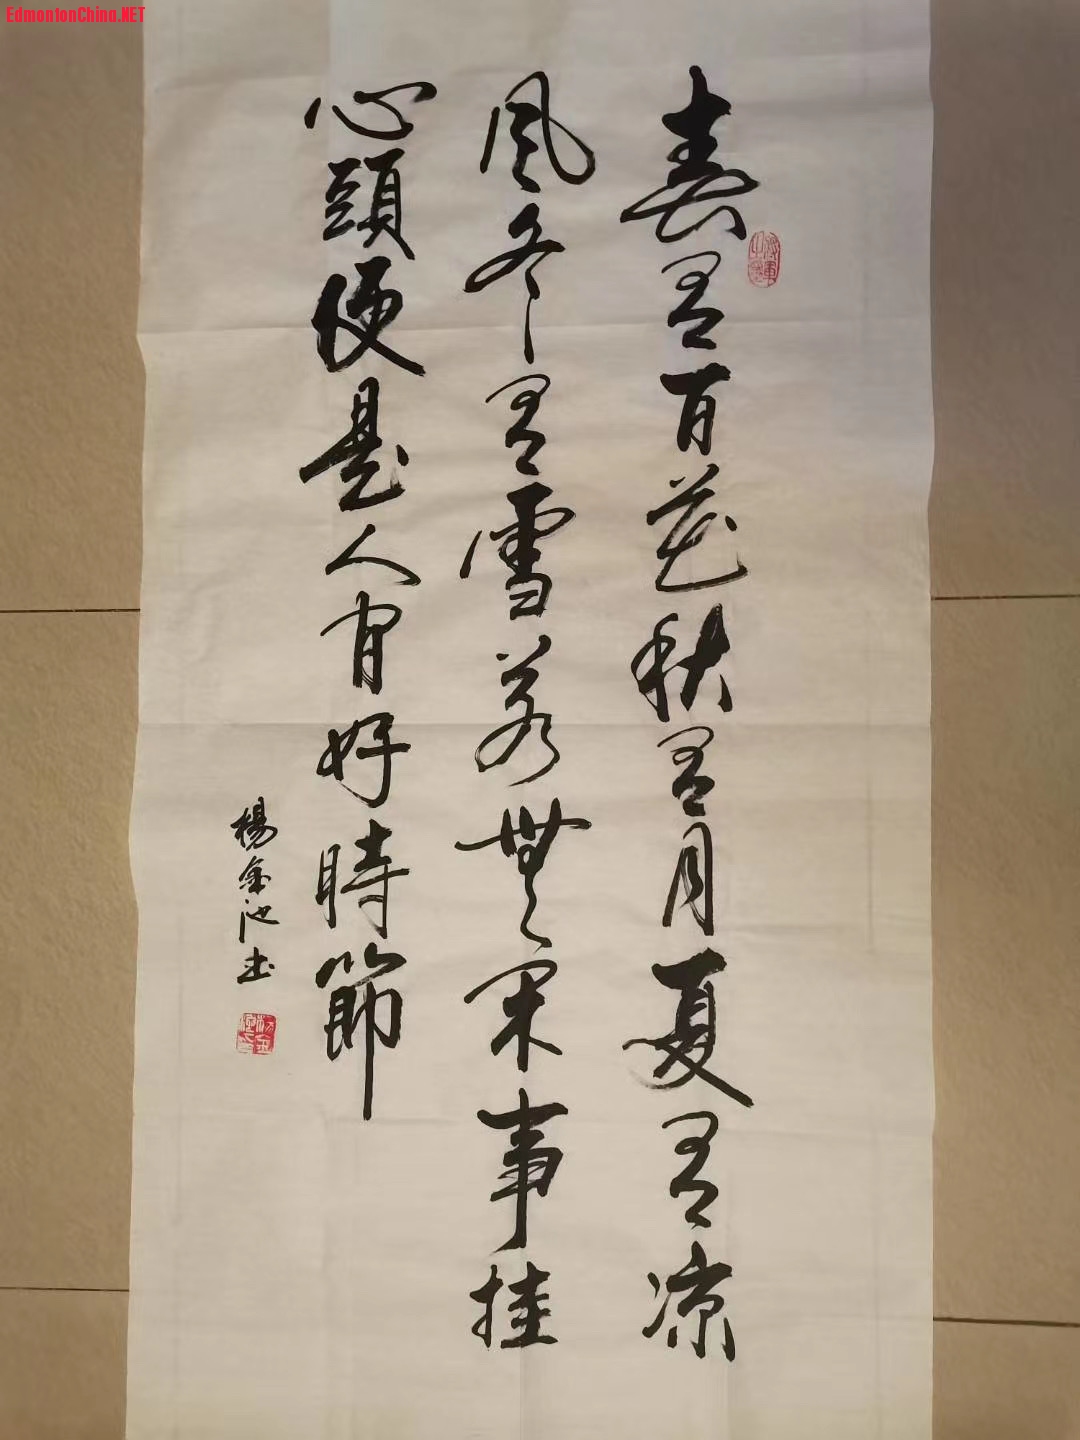 EdmontonChina.NET
春有百花秋有月夏有凉
风冬有雪若無闲事挂
心頭便是人间好時節
楊金池书